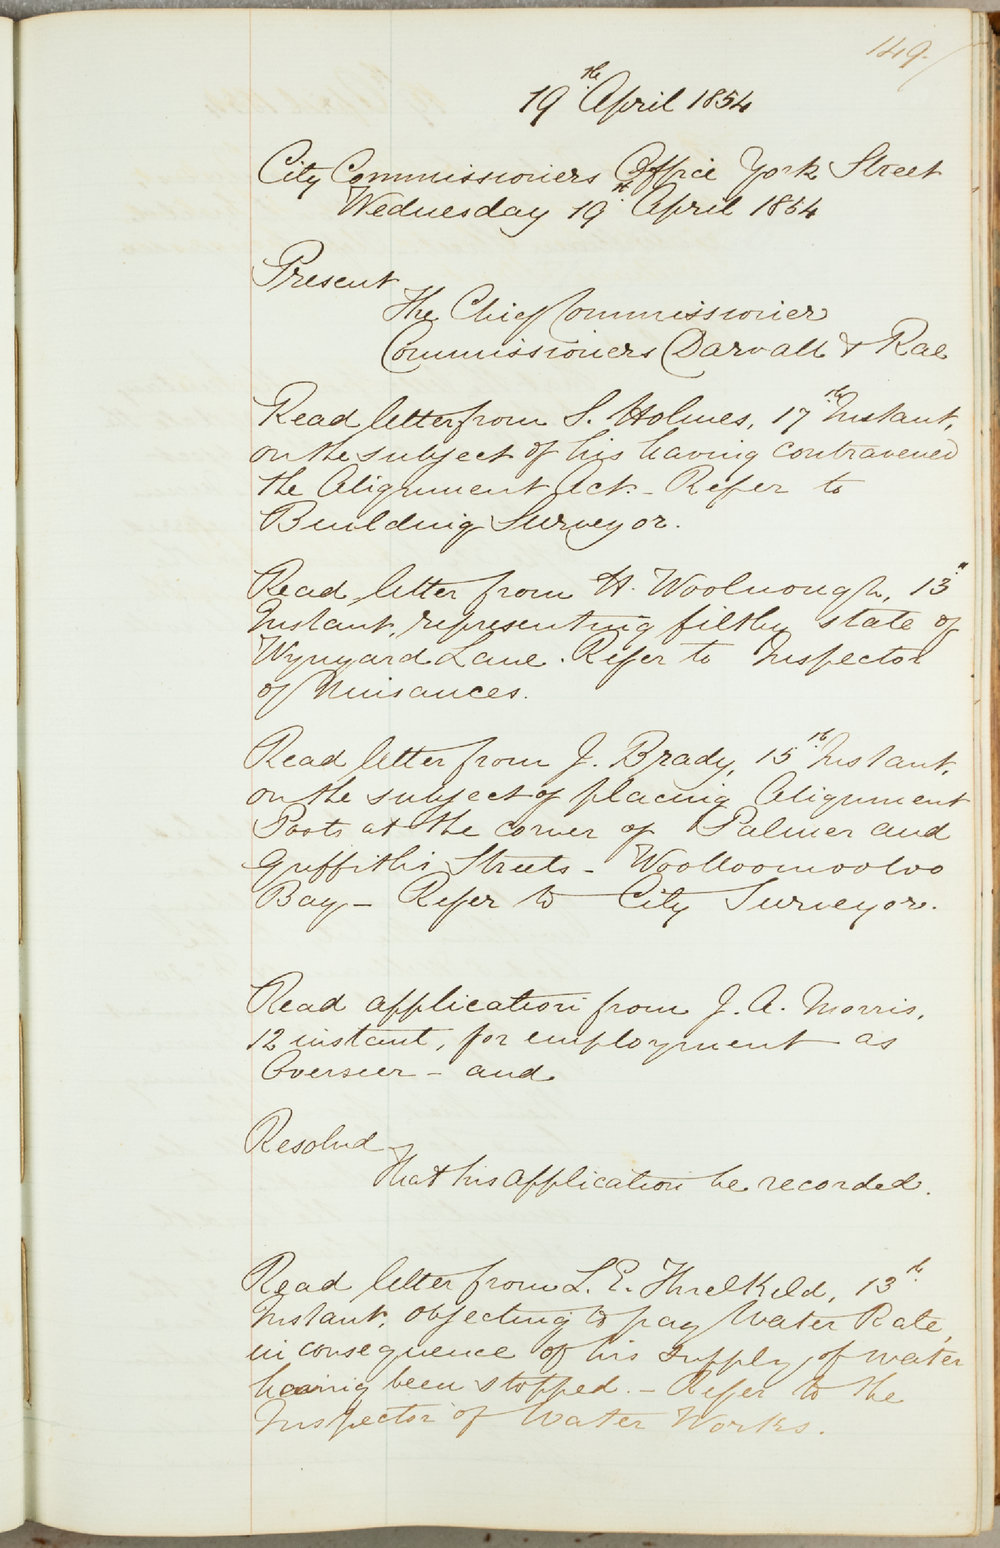 149.
19th April 1854
City Commissioners Office York Street
Wednesday 19th April 1854
Present
The Chief Commissioner
Commissioners Darvall & Rae
Read letter from S. Holmes, 17th Instant,
on the subject of his having contravened
the Alignment Act. - Refer to
Building Surveyor.
Read letter from H. Woolnough, 13"
Instant, representing filthy state of
Wynyard Lane. Refer to Inspector
of Nuisances.
Read letter from J. Brady, 15th Instant,
on the subject of placing Alignment
Posts at the corner of Palmer and
Griffiths Streets - Woolloomooloo
Bay - Refer to City Surveyor.
Read application from J. A. Morris,
12 instant, for employment as
Overseer - and
Resolved
That his application be recorded.
Read letter from L. E. Threlkeld, 13th
Instant, objecting to pay Water Rate,
in consequence of his supply of water
having been stopped. - Refer to the
Inspector of Water Works.